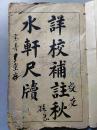 詳校補註秋
水軒尺牘